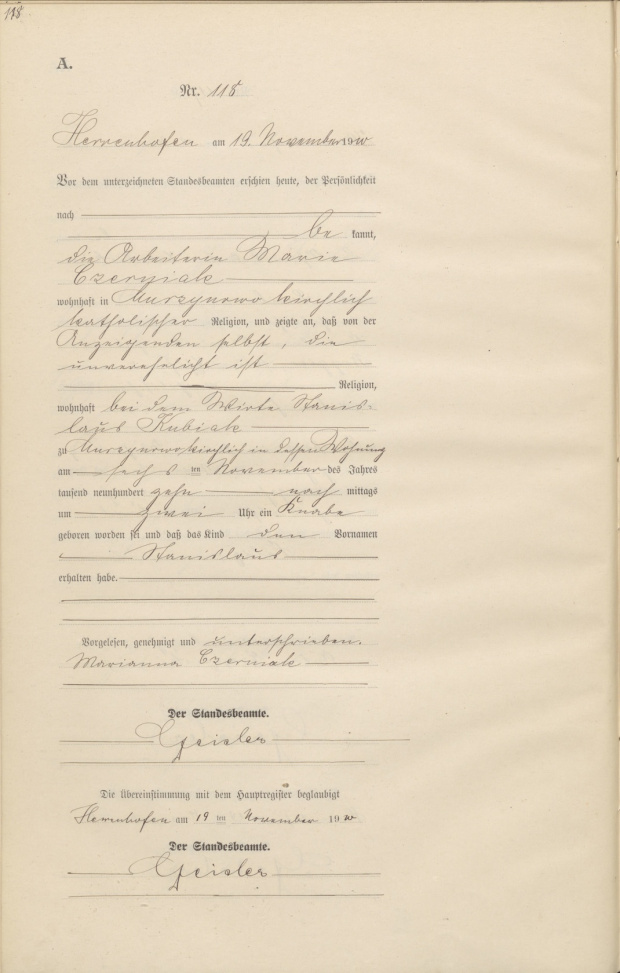 118
A.
Nr. 118
Herrenhofen am 19. November 1910
Vor dem unterzeichneten Standesbeamten erschien heute, der Persönlichkeit
nach
be kannt,
die Arbeiterin Marie
Czerniak
wohnhaft in Murzynowo kirchlich
katholischer Religion, und zeigte an, daß von der
Anzeigenden selbst, die
unverehelicht ist
Religion,
wohnhaft bei dem Wirte Stanis-
laus Kubiak
zu Murzynowo kirchlich in dessen Wohnung
am sechs ten November des Jahres
tausend neunhundert zehn nach mittags
um zwei Uhr ein Knabe
geboren worden sei und daß das Kind den Vornamen
Stanislaus
erhalten habe.
Vorgelesen, genehmigt und unterschrieben.
Marianna Czerniak
Der Standesbeamte.
Geisler
Die Übereinstimmung mit dem Hauptregister beglaubigt
Herrenhofen am 19 ten November 1910
Der Standesbeamte.
Geisler